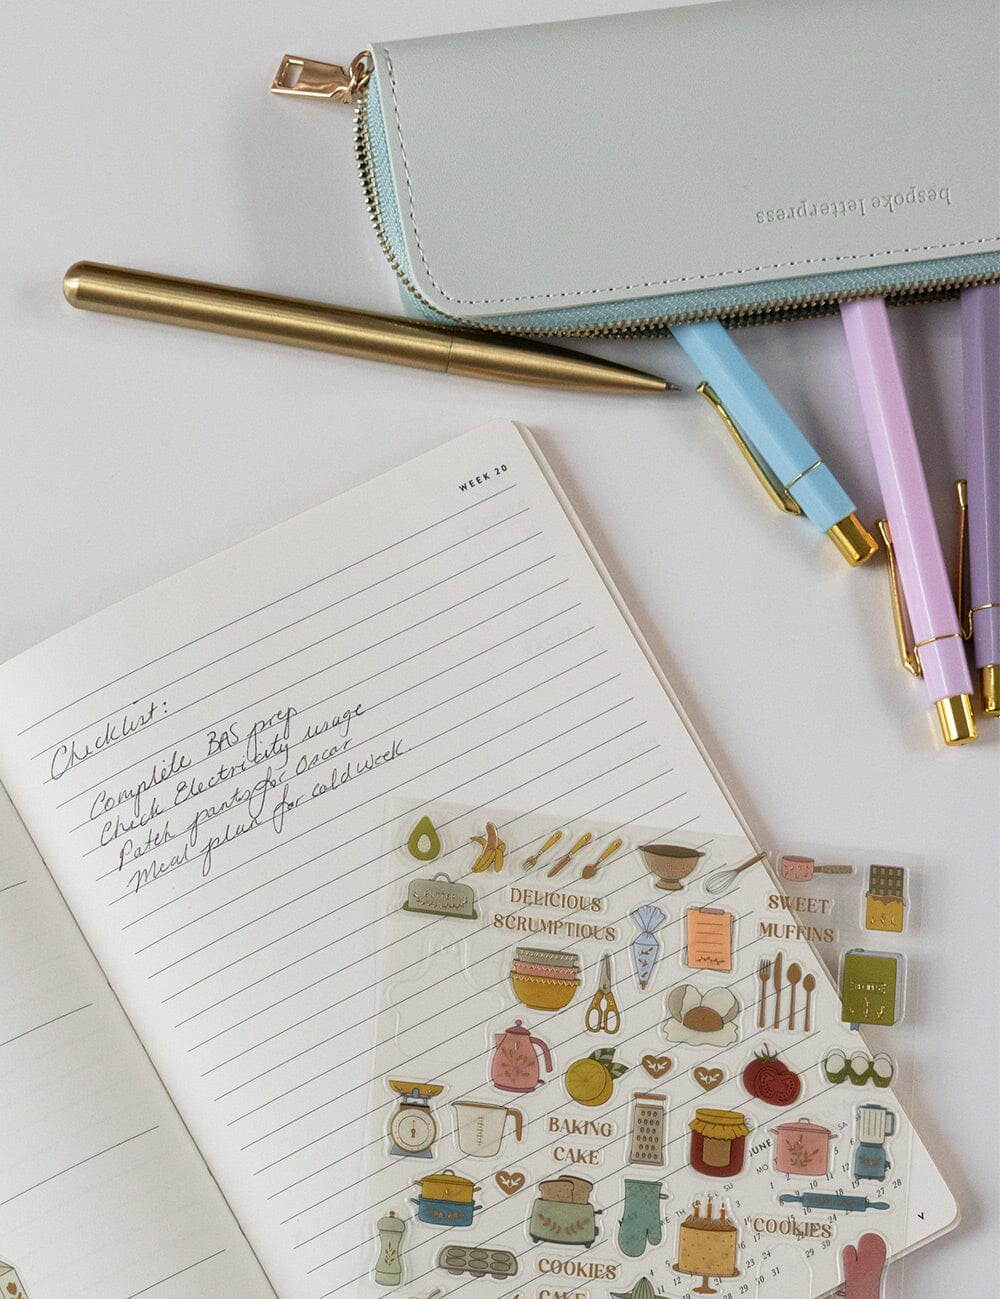 bespoke letterpress
WEEK 20
Checklist:
Complete BAS prep
Check Electricity usage
Patch pants for Oscar
Meal plan for cold week.
DELICIOUS
SCRUMPTIOUS
SWEET
MUFFINS
BAKING
CAKE
JUNE
COOKIES
COOKIES
CAKE